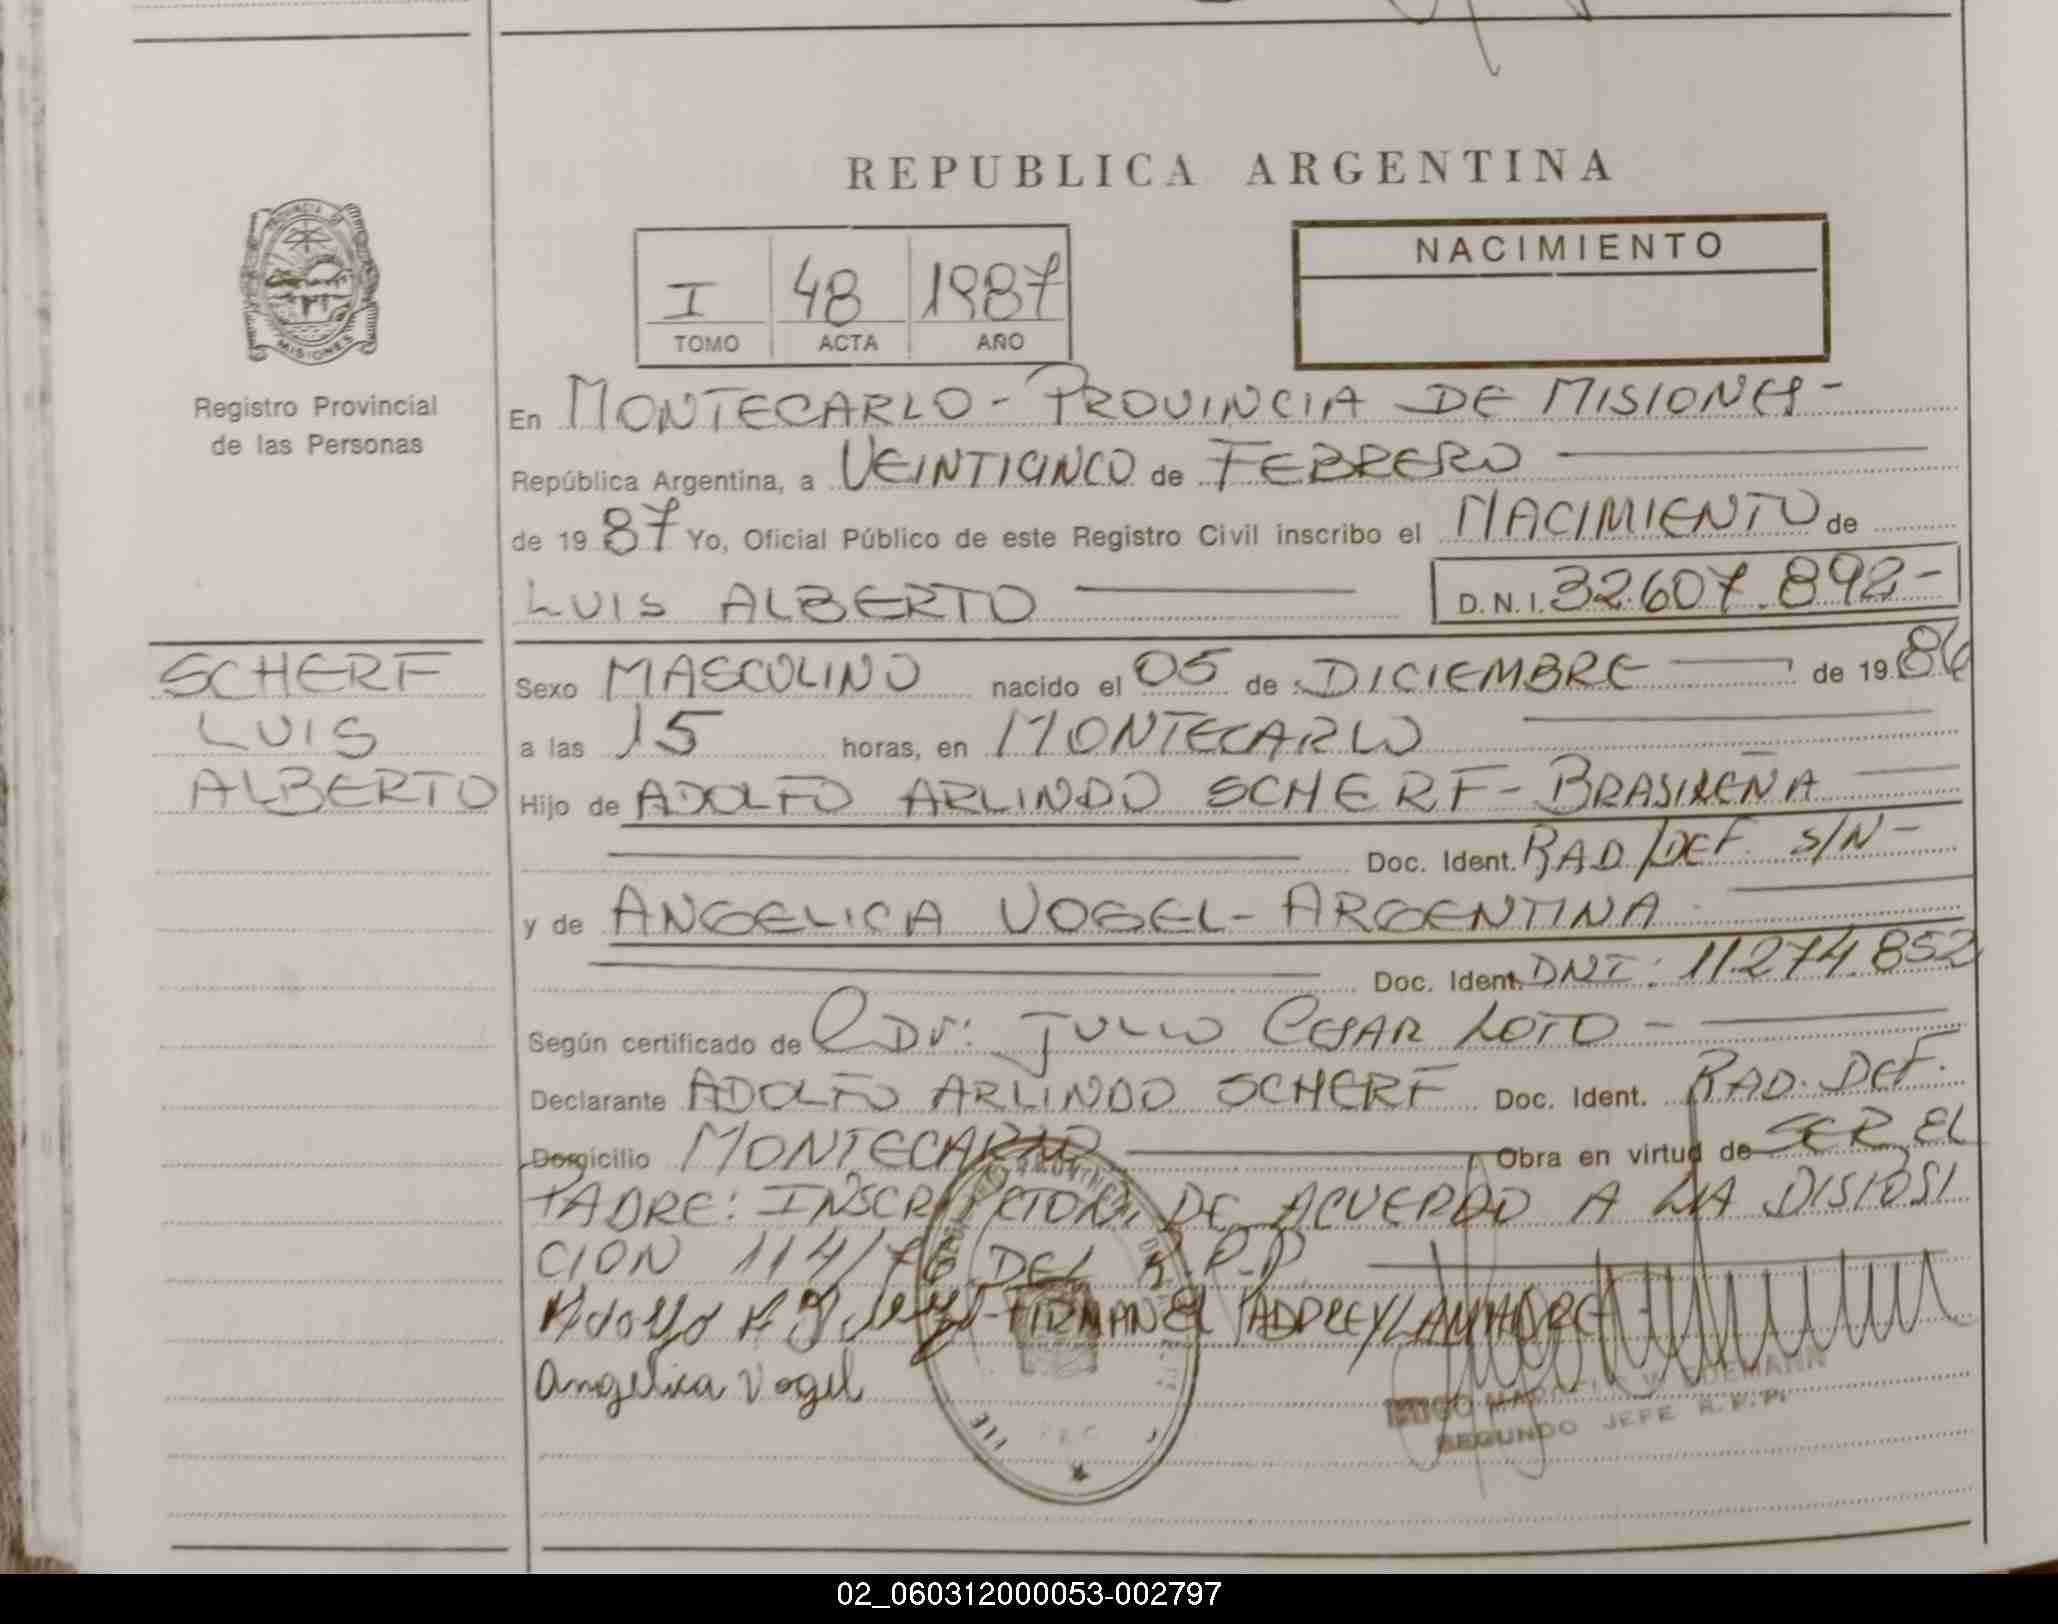 REPUBLICA ARGENTINA
PROVINCIA DE
MISIONES
Registro Provincial
de las Personas
I 48 1987
TOMO ACTA AÑO
NACIMIENTO
En MONTECARLO - PROVINCIA DE MISIONES -
República Argentina, a VEINTICINCO de FEBRERO
de 19 87 Yo, Oficial Público de este Registro Civil inscribo el NACIMIENTO de
LUIS ALBERTO D.N.I. 32.607.892 -
SCHERF
LUIS
ALBERTO
Sexo MASCULINO nacido el 05 de DICIEMBRE de 19 86
a las 15 horas, en MONTECARLO
Hijo de ADOLFO ARLINDO SCHERF - BRASILEÑA
Doc. Ident. RAD/DEF. S/N -
y de ANGELICA VOGEL - ARGENTINA
Doc. Ident. DNI: 11.274.852
Según certificado de Dr: JULIO CESAR LOTO -
Declarante ADOLFO ARLINDO SCHERF Doc. Ident. RAD. DEF.
Domicilio MONTECARLO Obra en virtud de SER EL
PADRE: INSCRIPCION DE ACUERDO A LA DISPOSI
CION 114/76 DEL R.P.P
Adolfo A - FIRMAN EL PADRE Y LA MADRE -
Angelica Vogel
SEGUNDO JEFE R.P.P.
02_060312000053-002797